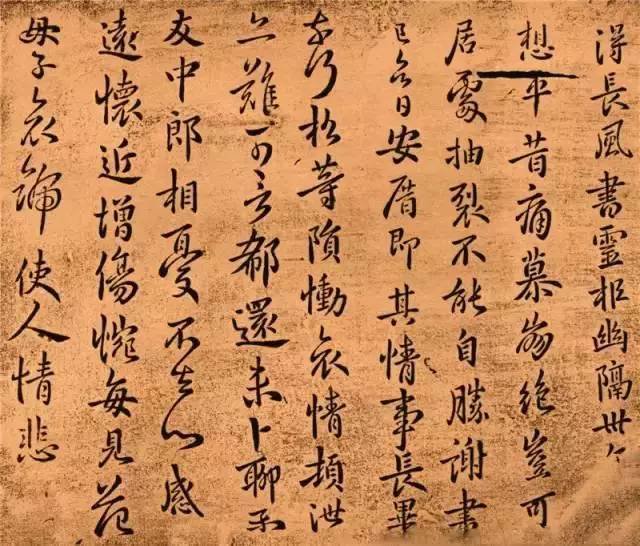 得長風書靈柩幽隔卅々
想平昔痛慕崩絕豈可
居處抽裂不能自勝謝書
已日安厝即其情事長畢
奈何松等隕慟哀情頓泄
亦難可言郗還未卜聊示
友中郎相憂不去心感
遠懷近增傷惋每見范
母子哀號使人情悲